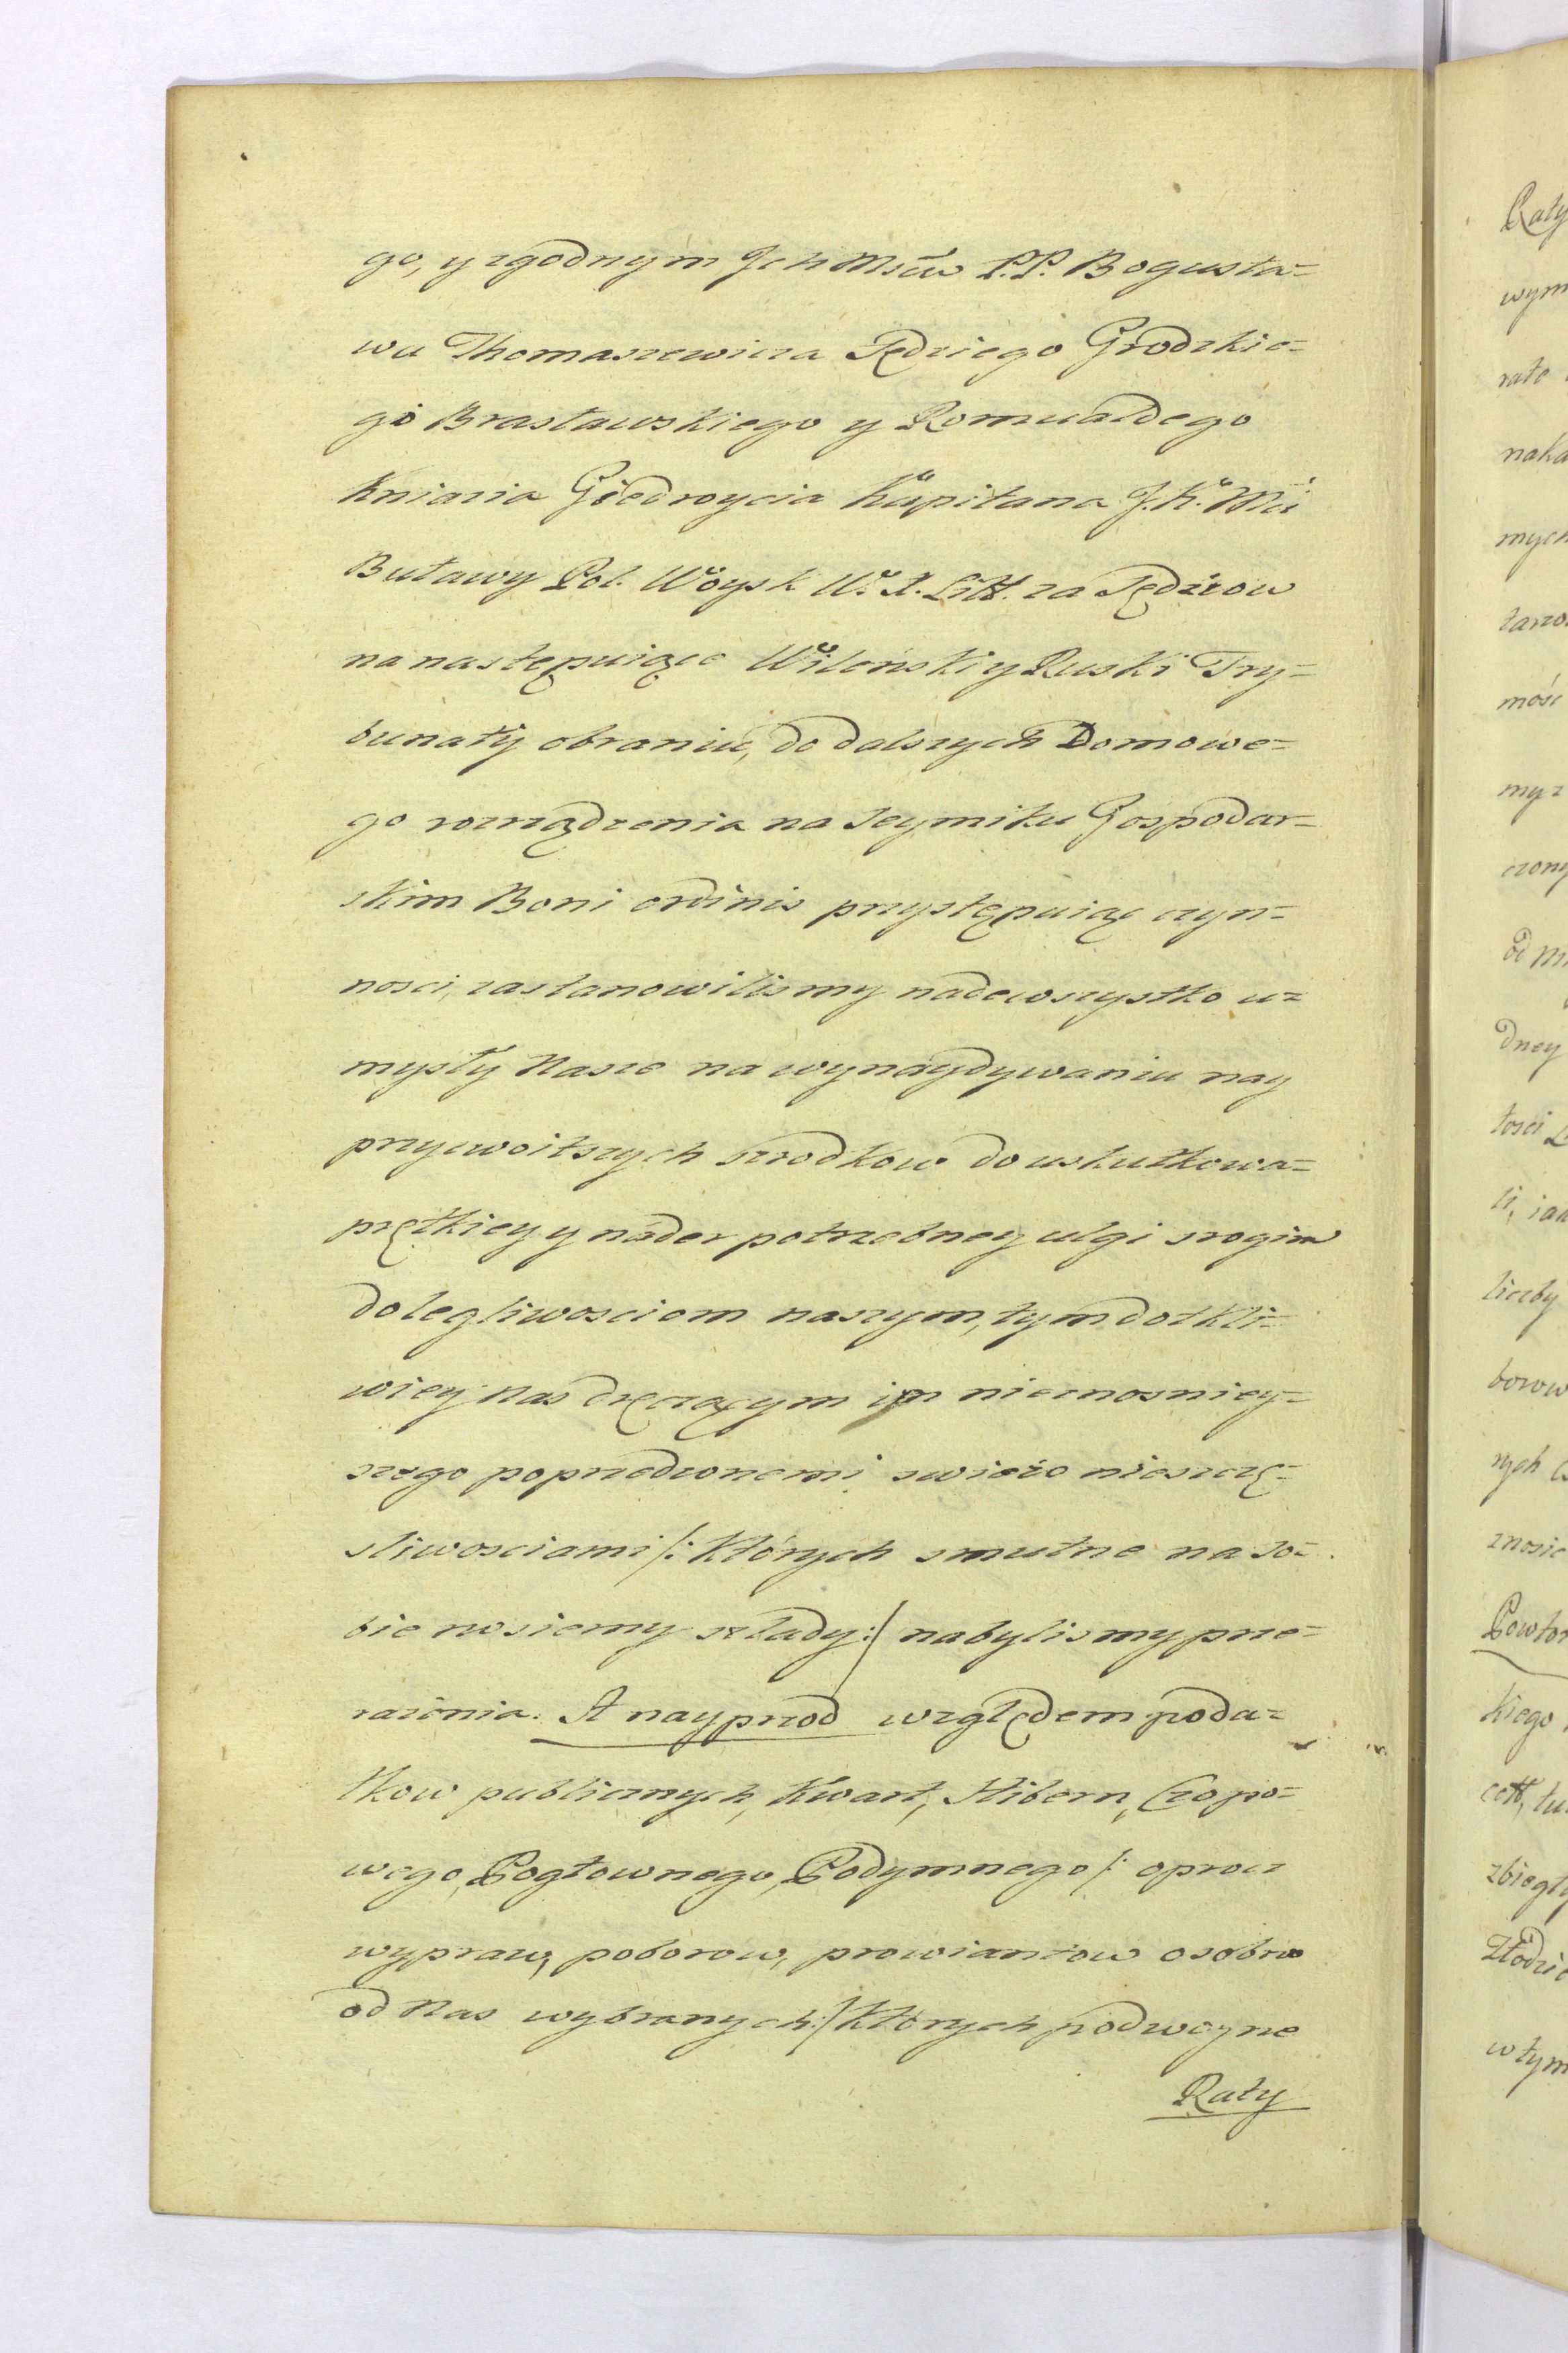 go, y zgodnym Ich Mściw P.P. Bogusła=
wa Thomaszewicza Sędziego Grodzkie=
go Brasławskiego y Romualdego
Kniazia Giedroycia Kapitana J. K. Mci
Buławy Pol. Woysk W. X. Litt. za Sędziow
na następuiące Wilenski y Ruski Try=
bunały obraniu, do dalszych Domowe=
go rozrządzenia na Seymiku Gospodar=
skim Boni ordinis przystępuiąc czyn=
nosci, zastanowilismy nadewszystko u=
mysły Nasze na wynaydywaniu nay
przyzwoitszych szrodkow do uskutkowa=
prętkiey y nader potrzebney ulgi srogim
dolegliwosciom naszym, tym dotkli=
wiey Nas dręczącym im nieznosniey=
szego poprzedzonemi swieżo nieszczę=
sliwosciami /: których smutne na so=
bie nosiemy szlady :/ nabylismy prze=
rażenia. A nayprzod względem poda=
tkow publicznych, Kwart, Hibern, Czopo=
wego, Pogłownego, Podymnego /: oprocz
wypraw, poborow, prowiantow osobno
od Nas wybranych :/ których podwoyne
Raty
Raty
wym
rate
naka
mych
tarzo
mośc
my z
czony
od
dney
tosci
li, iad
liczby
borow
nych
znosic
Powtor
kiego
cett, tu
zbiegły
złodzie
w tym